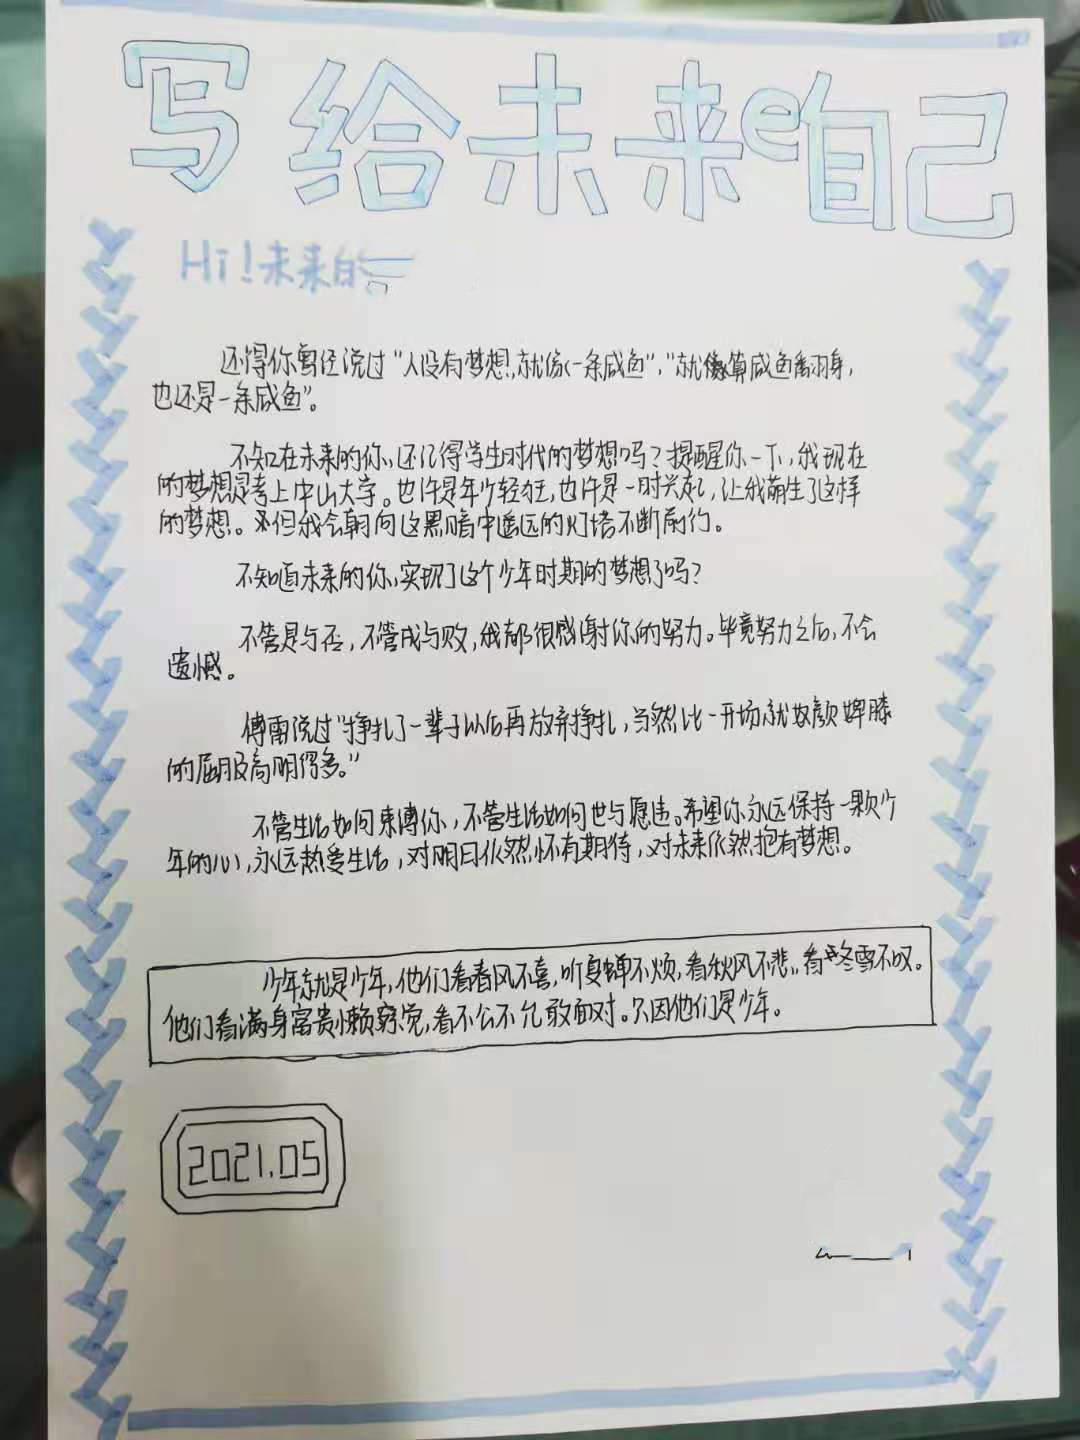 写给未来e自己
Hi!未来的
还得你曾经说过“人没有梦想,就像一条咸鱼”,“就算咸鱼翻身,
也还是一条咸鱼”。
不知在未来的你,还记得学生时代的梦想吗?提醒你一下,我现在
的梦想是考上中山大学。也许是年少轻狂,也许是一时兴起,让我萌生了这样
的梦想。但我会朝向这黑暗中遥远的灯塔不断前行。
不知道未来的你,实现了这个少年时期的梦想了吗?
不管是与否,不管成与败,我都很感谢你的努力。毕竟努力之后,不会
遗憾。
傅雷说过“挣扎了一辈子以后再放弃挣扎,当然比一开场就奴颜婢膝
的屈服高明得多。”
不管生活如何束缚你,不管生活如何世与愿违。希望你永远保持一颗少
年的心,永远热爱生活,对明日依然怀有期待,对未来依然抱有梦想。
少年就是少年,他们看春风不喜,听夏蝉不烦,看秋风不悲,看冬雪不叹。
他们看满身富贵懒察觉,看不公不允敢面对。只因他们是少年。
2021.05